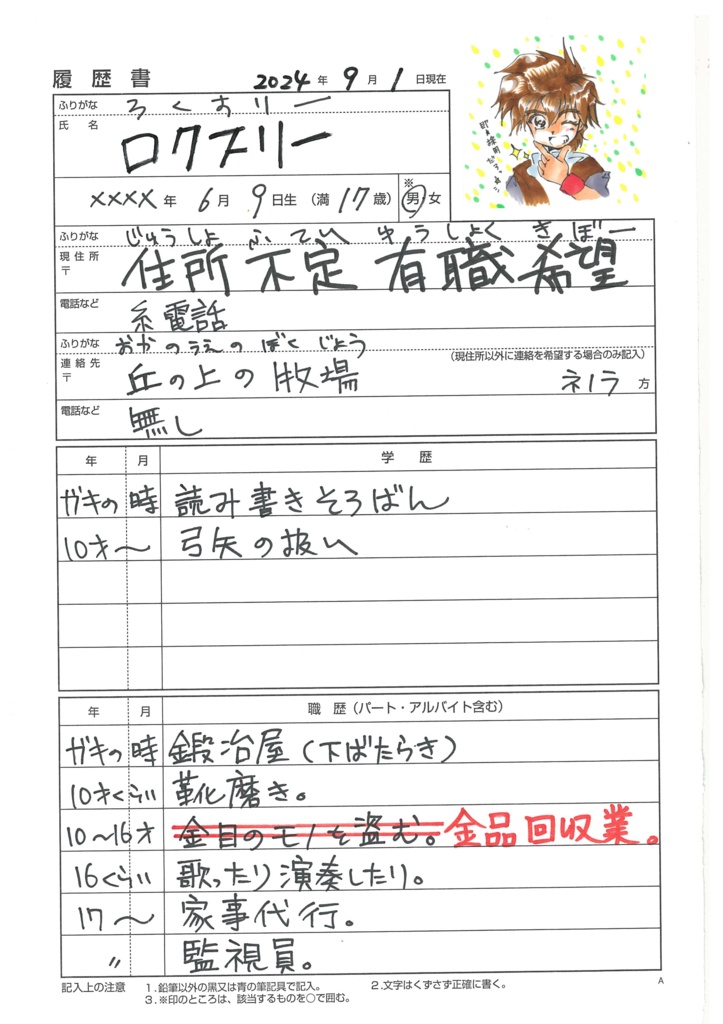 履歴書 2024年 9月 1日現在
ふりがな ろくすりー
氏名 ロクスリー
××××年 6月 9日生 (満 17歳) ※ 男・女
即★採用
だろっ★
ふりがな じゅうしょ ふてい ゆうしょく きぼー
現住所 〒 住所不定 有職希望
電話など 糸電話
ふりがな おかのうえの ぼくじょう
連絡先 〒 (現住所以外に連絡を希望する場合のみ記入)
丘の上の牧場 ネノラ 方
電話など 無し
年 月 学歴
ガキの時 読み書きそろばん
10才〜 弓矢の扱い
年 月 職歴(パート・アルバイト含む)
ガキの時 鍛冶屋(下ばたらき)
10才くらい 靴磨き。
10〜16才 金目のモノを盗む。金品回収業。
16くらい 歌ったり演奏したり。
17〜 家事代行。
〃 監視員。
記入上の注意 1.鉛筆以外の黒又は青の筆記具で記入。 2.文字はくずさず正確に書く。
3.※印のところは、該当するものを○で囲む。
A